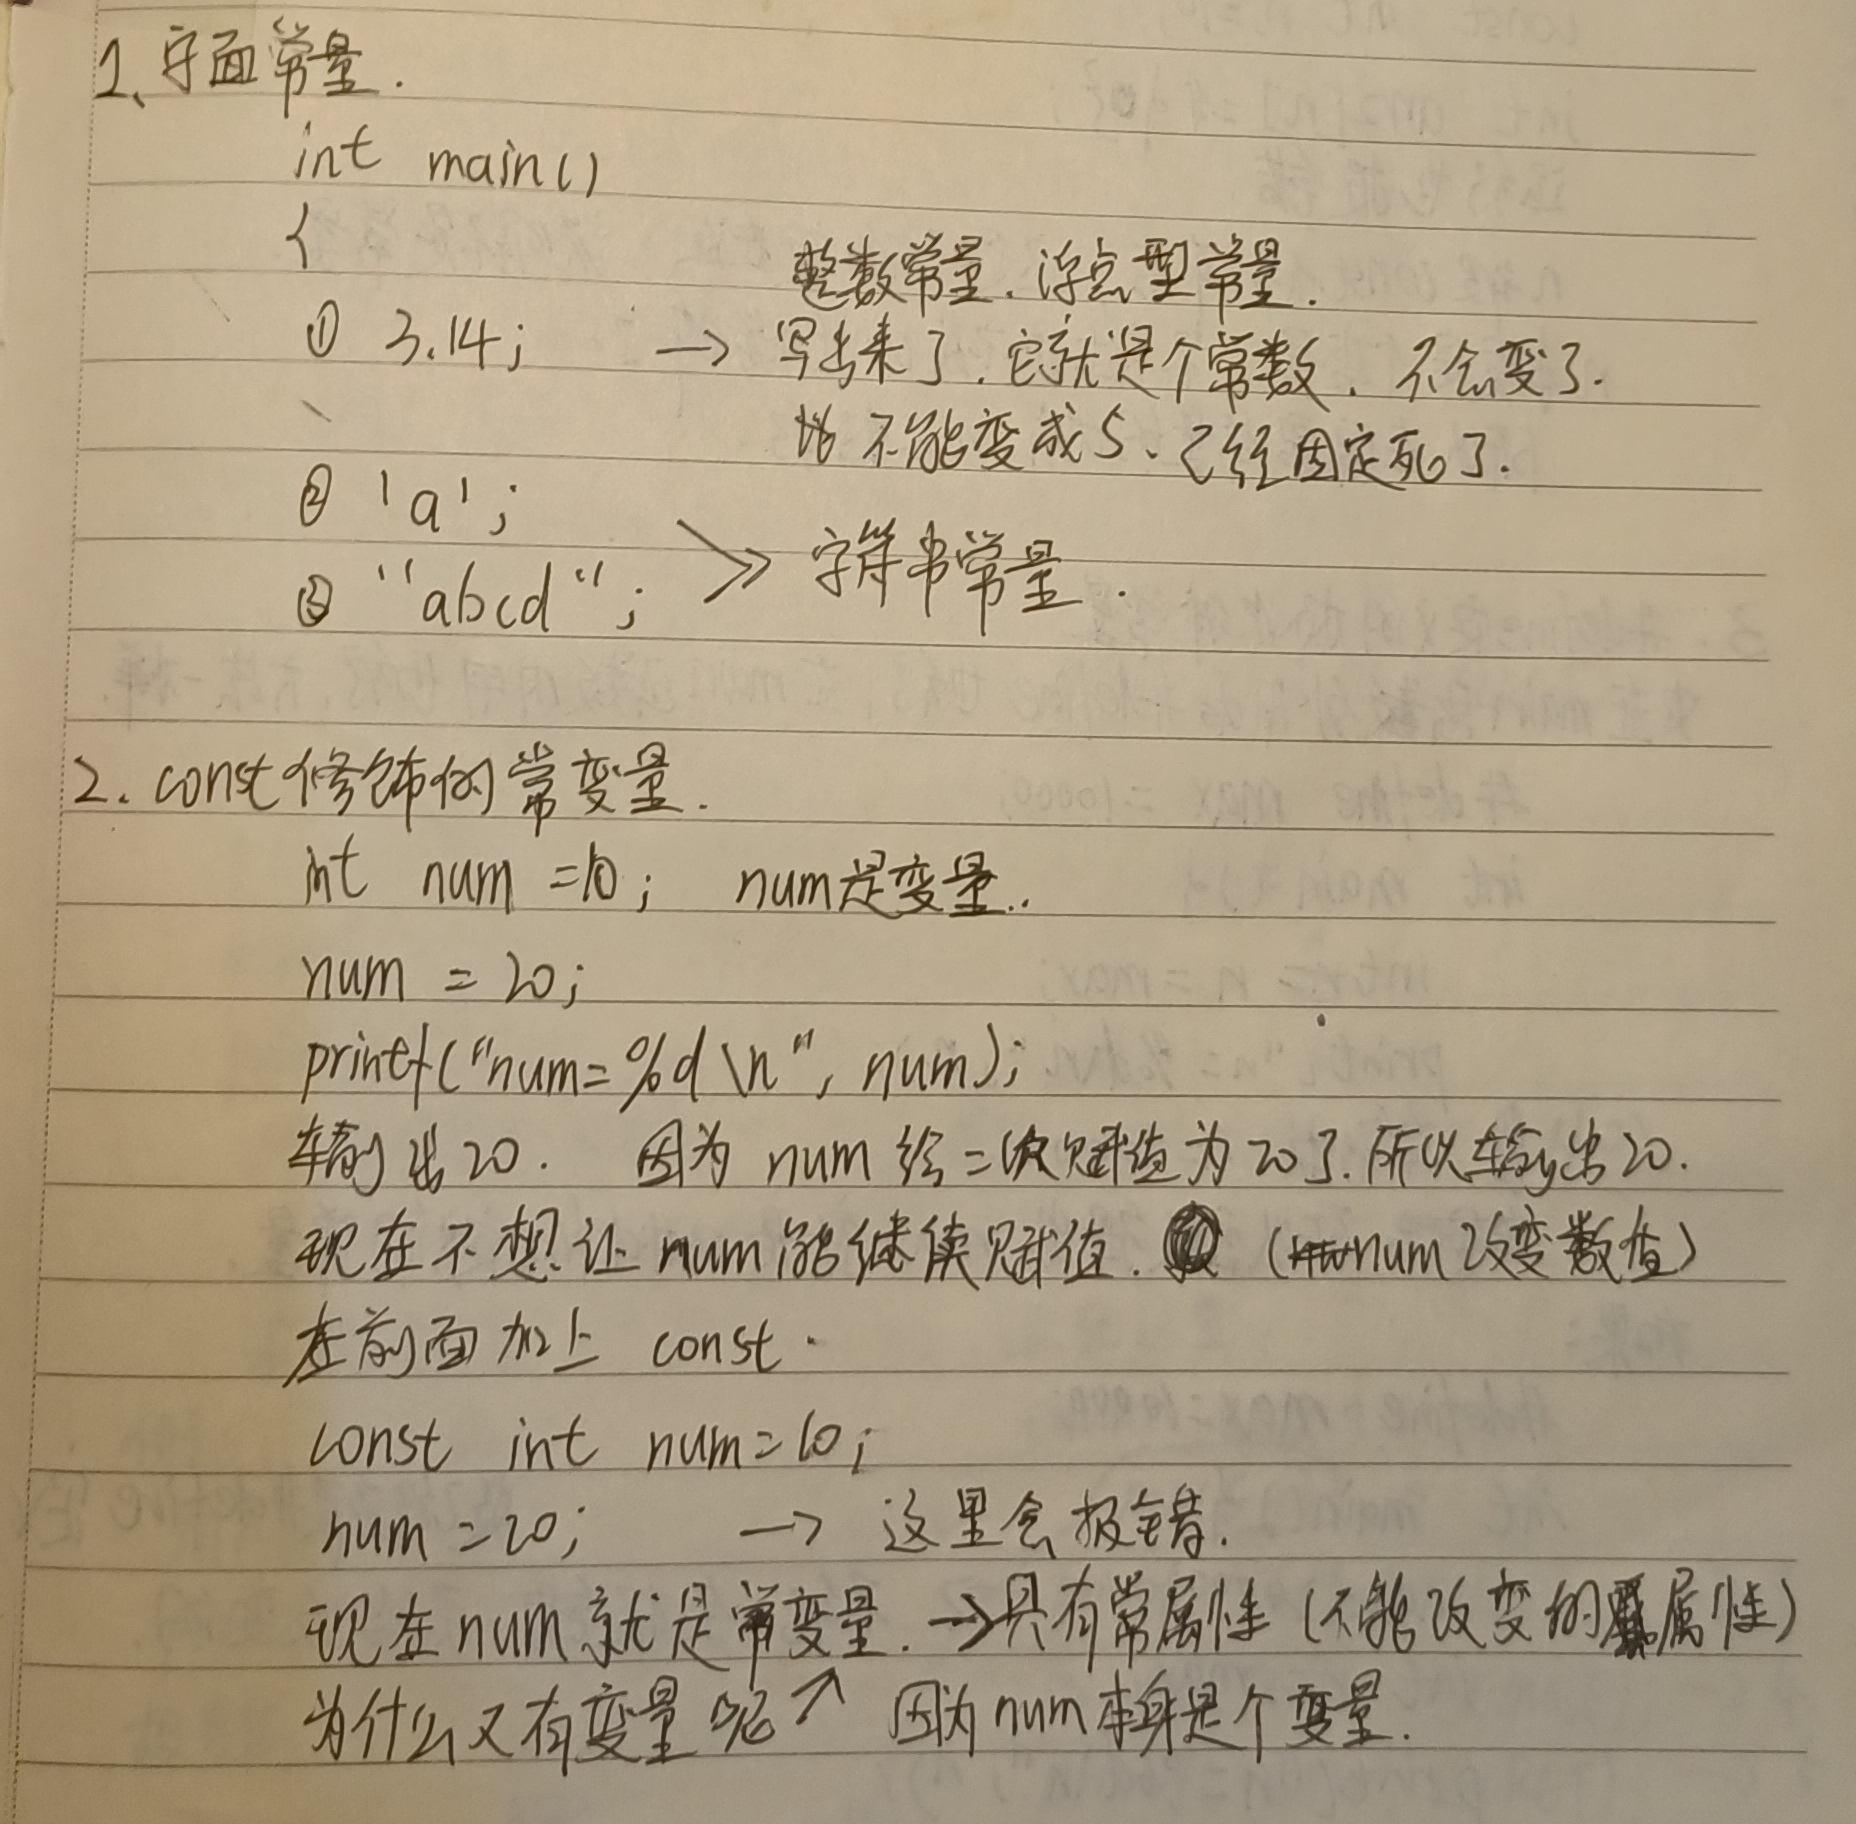 1、字面常量.
int main()
{
整数常量、浮点型常量.
① 3.14; → 写出来了、它就是个常数、不会变了.
不能变成5、已经固定死了.
② 'a';
③ "abcd"; >> 字符串常量.
2. const修饰的常变量.
int num =10; num是变量..
num = 20;
printf("num=%d\n", num);
输出20. 因为 num 给二次赋值为20了.所以输出20.
现在不想让 num能继续赋值. (num改变数值)
在前面加上 const.
const int num=10;
num=20; → 这里会报错.
现在num就是常变量. →具有常属性 (不能改变的属性)
为什么又有变量呢↗ 因为num本身是个变量.